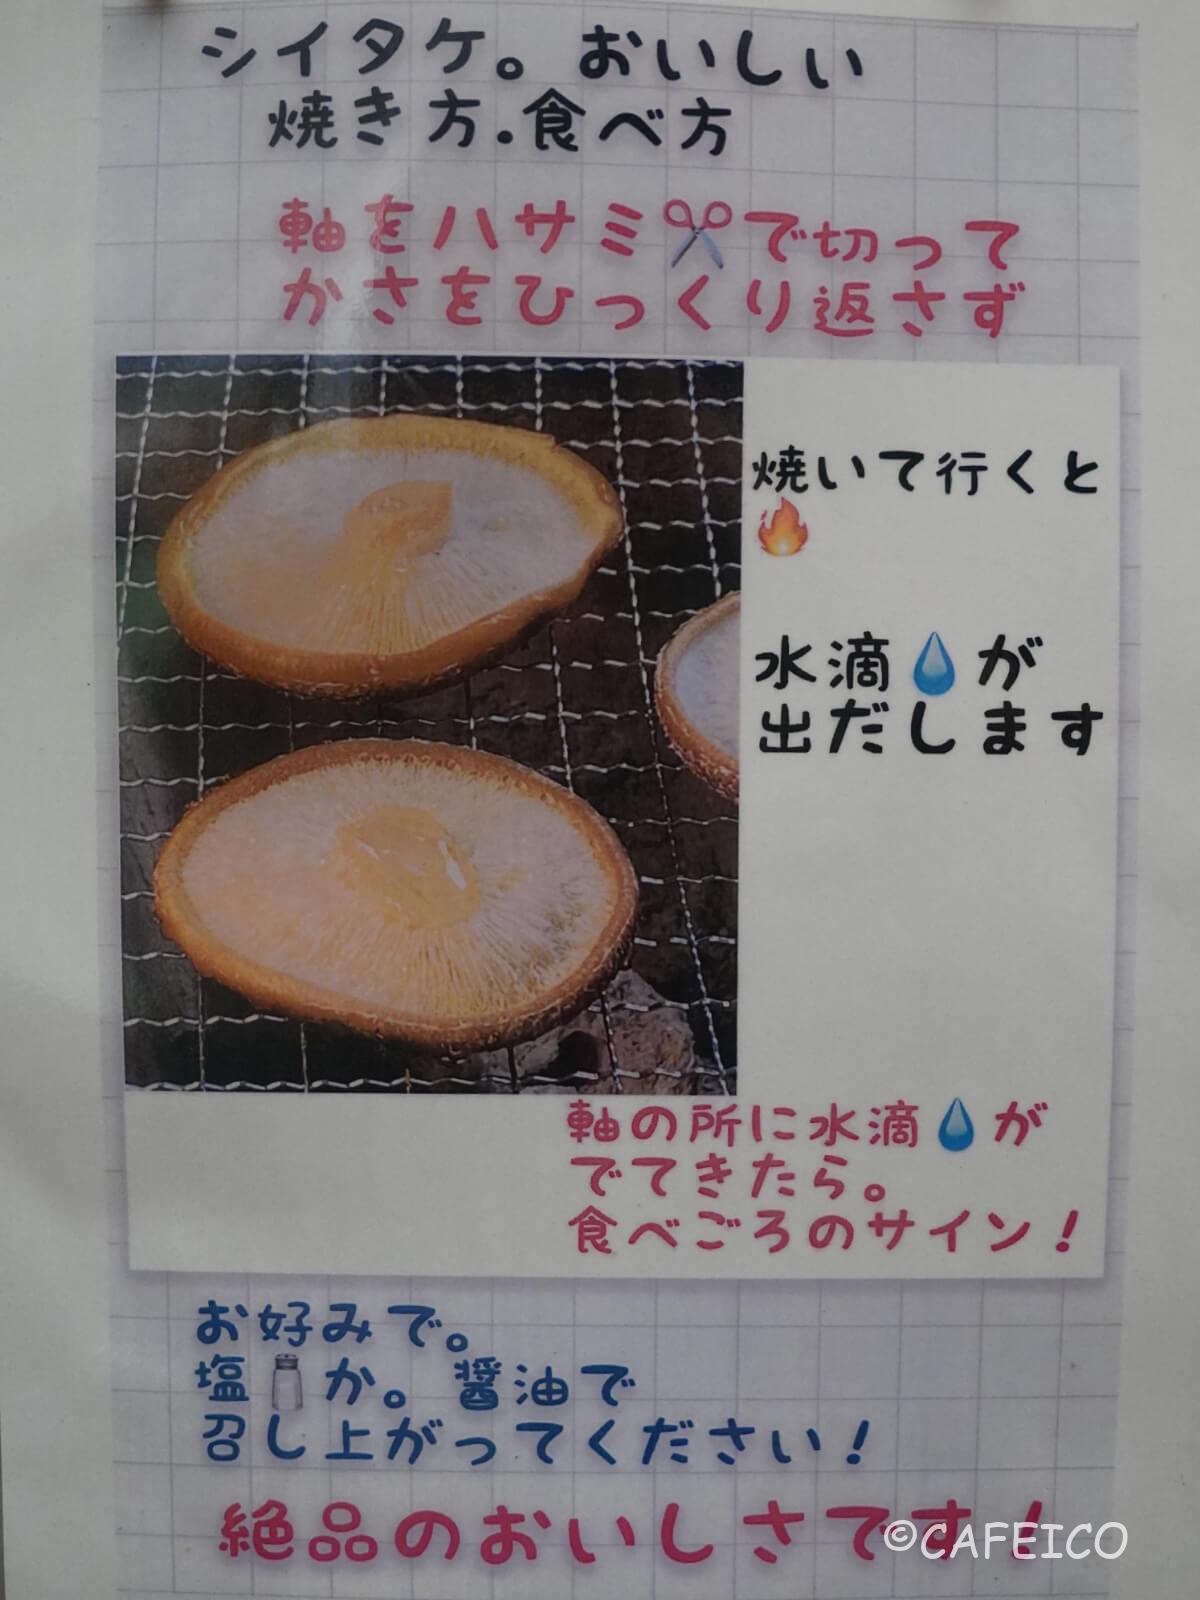 シイタケ。おいしい
焼き方.食べ方
軸をハサミ✂で切って
かさをひっくり返さず
焼いて行くと
🔥
水滴💧が
出だします
軸の所に水滴💧が
でてきたら。
食べごろのサイン！
お好みで。
塩🧂か。醤油で
召し上がってください！
絶品のおいしさです！
©CAFEICO